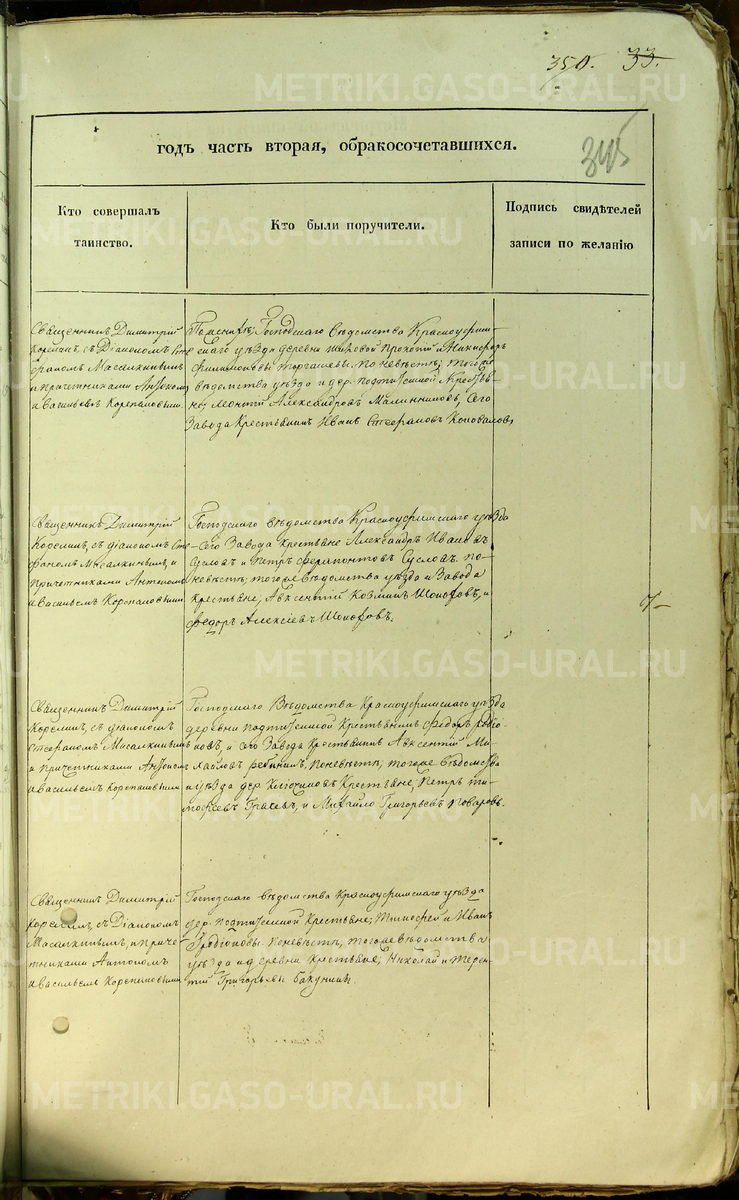 350. 33.
345
годъ часть вторая, обракосочетавшихся.
Кто совершалъ
таинство.
Кто были поручители.
Подпись свидѣтелей
записи по желанію
Священникъ Димитрій
Корелинъ, съ Діакономъ Сте
фаномъ Масалкинымъ
и причетниками Антономъ
и Васильемъ Корепановыми.
По женихѣ; Господскаго вѣдомства Красноуфим-
скаго уѣзда деревни
Филимоновы по невѣстѣ; тогоже
вѣдомства уѣзда и дер. Крестья
не; Леонтій Александровъ Малинниковъ, Сего
Завода Крестьянинъ Иванъ Стефановъ Коновалов,
Священникъ Димитрій
Корелинъ, съ діакономъ Сте
фаномъ Масалкинымъ, и
Причетниками Антономъ
и Васильемъ Корепановыми
Господскаго вѣдомства Красноуфимскаго уѣзда
Сего Завода крестьяне Александръ Ивановъ
Сусловъ и Петръ Ферапонтовъ Сусловъ. по
невѣстѣ; тогоже вѣдомства уѣзда и Завода
крестьяне, Авксентій Козминъ и
Федоръ Алексѣевъ
Священникъ Димитрій
Корелинъ, съ діакономъ
Стефаномъ Масалкинымъ
и причетниками Антономъ
и Васильемъ Корепановыми
Господскаго Вѣдомства Красноуфимскаго уѣзда
деревни Крестьянинъ Федоръ
и сего Завода крестьянинъ Авксентій Ми
хайловъ по невѣстѣ, тогоже Вѣдомства
и уѣзда дер. Крестьяне, Петръ Ти
мофеевъ и Михайло Григорьевъ Поваровъ.
Священникъ Димитрій
Корелинъ, съ Діакономъ
Масалкинымъ, и приче
тниками Антономъ
и Васильемъ Корепановыми
Господскаго вѣдомства Красноуфимскаго уѣзда
дер. Крестьяне; Тимофей и Иванъ
по невѣстѣ, тогоже вѣдомства
уѣзда и деревни Крестьяне; Николай и Терен
тій Григорьевы Бакунины.
METRIKI.GASO-URAL.RU